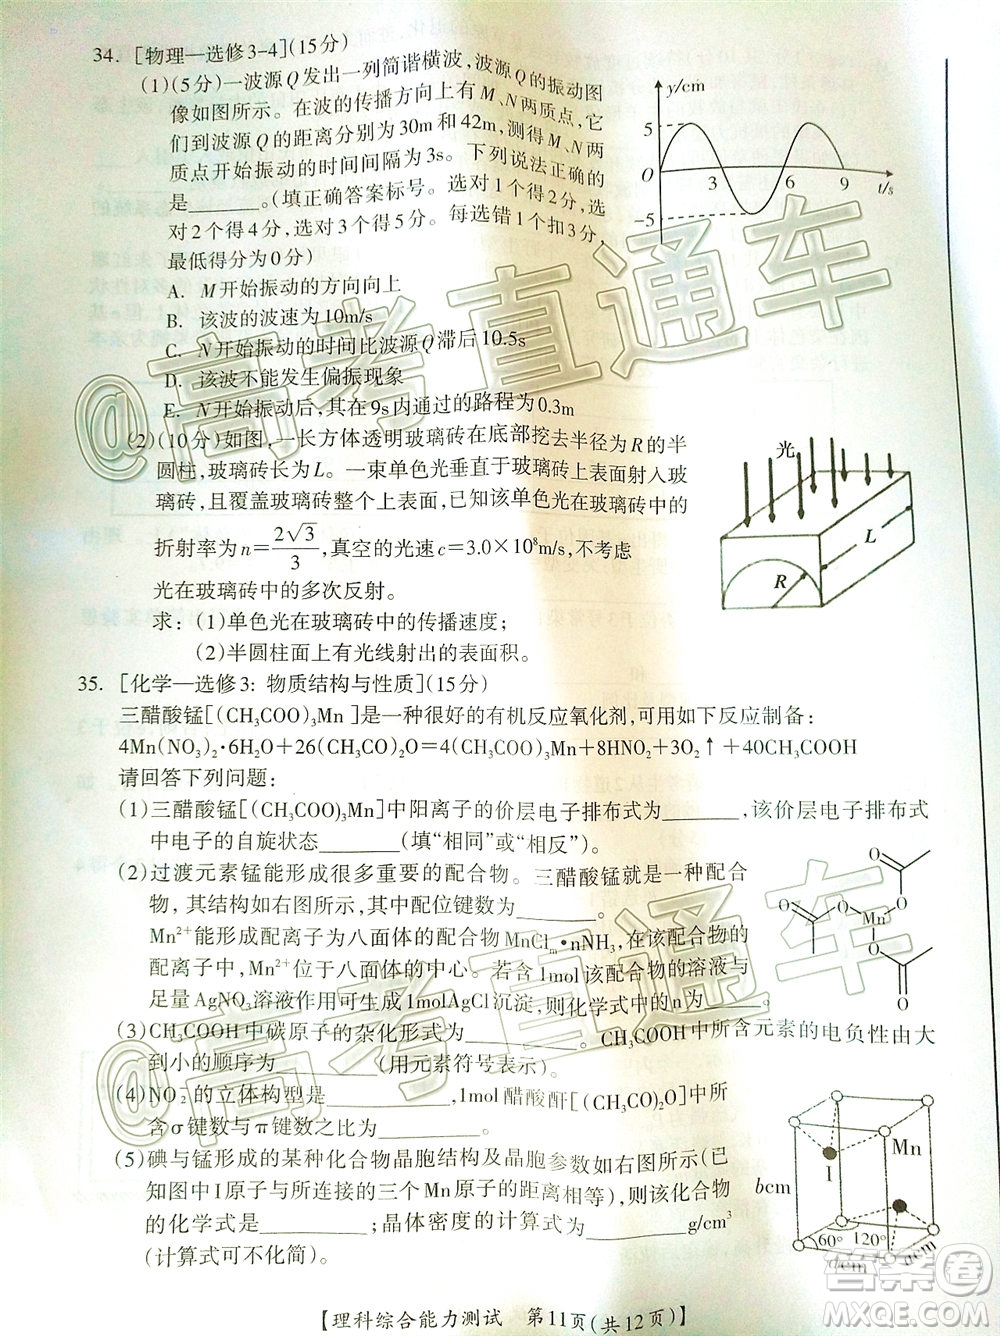 34. [物理—选修3-4](15分)
(1)(5分)一波源Q发出一列简谐横波,波源Q的振动图
像如图所示。在波的传播方向上有M、N两质点,它
们到波源Q的距离分别为30m和42m,测得M、N两
质点开始振动的时间间隔为3s。下列说法正确的
是______。(填正确答案标号。选对1个得2分,选
对2个得4分,选对3个得5分。每选错1个扣3分,
最低得分为0分)
A. M开始振动的方向向上
B. 该波的波速为10m/s
C. N开始振动的时间比波源Q滞后10.5s
D. 该波不能发生偏振现象
E. N开始振动后,其在9s内通过的路程为0.3m
y/cm
5
O
3
6
9
t/s
-5
(2)(10分)如图,一长方体透明玻璃砖在底部挖去半径为R的半
圆柱,玻璃砖长为L。一束单色光垂直于玻璃砖上表面射入玻
璃砖,且覆盖玻璃砖整个上表面,已知该单色光在玻璃砖中的
折射率为n=2√3/3,真空的光速c=3.0×10⁸m/s,不考虑
光在玻璃砖中的多次反射。
求:(1)单色光在玻璃砖中的传播速度;
(2)半圆柱面上有光线射出的表面积。
光
L
R
35. [化学—选修3:物质结构与性质](15分)
三醋酸锰[(CH₃COO)₃Mn]是一种很好的有机反应氧化剂,可用如下反应制备:
4Mn(NO₃)₂·6H₂O+26(CH₃CO)₂O=4(CH₃COO)₃Mn+8HNO₂+3O₂↑+40CH₃COOH
请回答下列问题:
(1)三醋酸锰[(CH₃COO)₃Mn]中阳离子的价层电子排布式为______,该价层电子排布式
中电子的自旋状态______(填“相同”或“相反”)。
(2)过渡元素锰能形成很多重要的配合物。三醋酸锰就是一种配合
物,其结构如右图,其中配位键数为______。
Mn²⁺能形成配离子为八面体的配合物MnClₘ·nNH₃,在该配合物的
中,Mn²⁺位于八面体的中心。若含1mol该配合物的溶液与
足量AgNO₃溶液作用可生成1molAgCl沉淀,则化学式中的n为______。
O
O
O
O
Mn
O
O
(3)CH₃COOH中碳原子的杂化形式为______。CH₃COOH中所含元素的电负性由大
到小的顺序为______(用元素符号表示)。
(4)NO₂⁻的立体构型是______,1mol醋酸酐[(CH₃CO)₂O]中所
含σ键数与π键数之比为______。
(5)碘与锰形成的某种化合物晶胞结构及晶胞参数如右图所示(已
知图中I原子与所连接的三个Mn原子的距离相等),则该化合物
的化学式是______;晶体密度的计算式为______g/cm³
(计算式可不化简)。
Mn
I
bcm
60° 120°
acm
acm
答案圈
MXQE.COM
@高考直通车
@高考直通车
【理科综合能力测试 第11页(共12页)】